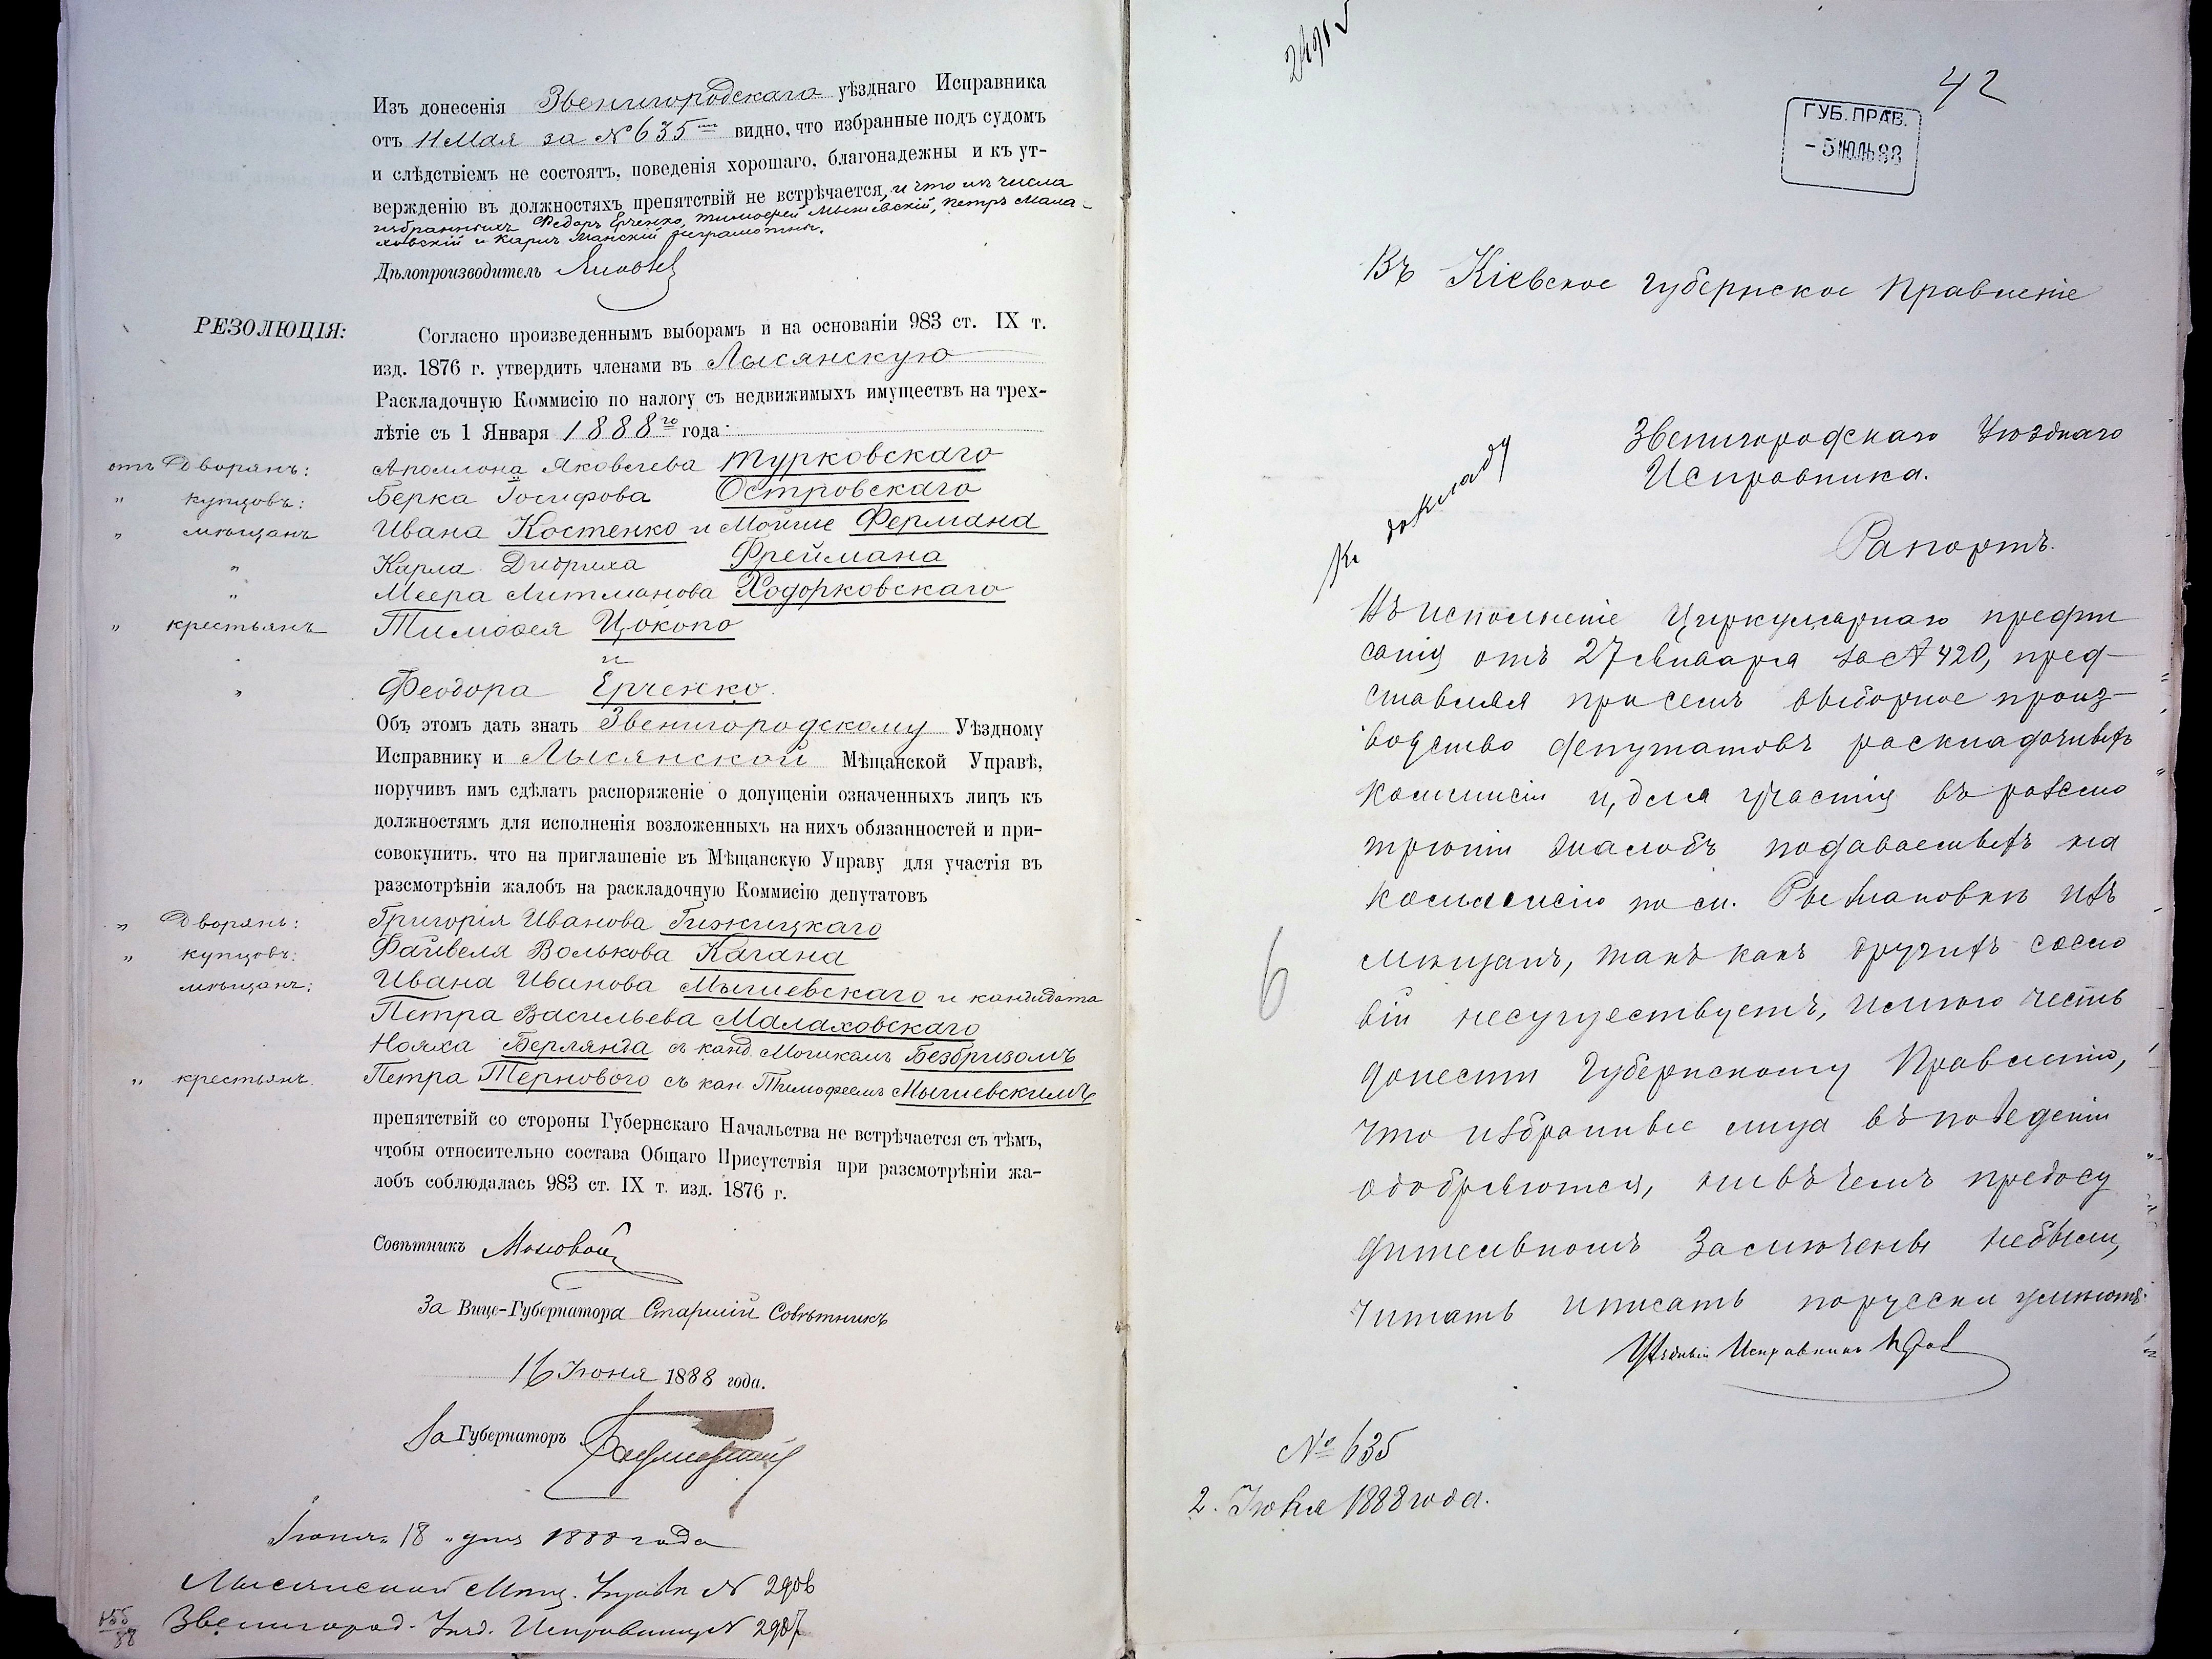 Изъ донесенія Звенигородскаго уѣзднаго Исправника
отъ 11 Мая за № 635 видно, что избранные подъ судомъ
и слѣдствіемъ не состоятъ, поведенія хорошаго, благонадежны и къ ут-
вержденію въ должностяхъ препятствій не встрѣчается, и что изъ числа
избранныхъ Федоръ Ерченко, Тимофей Мышевскій, Петръ Мала-
ховскій и Карлъ неграмотны.
Дѣлопроизводитель
РЕЗОЛЮЦІЯ:
Согласно произведеннымъ выборамъ и на основаніи 983 ст. IX т.
изд. 1876 г. утвердить членами въ Лысянскую
Раскладочную Коммисію по налогу съ недвижимыхъ имуществъ на трех-
лѣтіе съ 1 Января 1888го года:
отъ Дворянъ: Аполлона Яковлева Турковскаго
" купцовъ: Берка Іосифова Островскаго
" мѣщанъ Ивана Костенко и Мойше Фермана
" Карла Дидриха Фреймана
" Меера Литманова Ходорковскаго
" крестьянъ Тимофея Цокопо
и
" Феодора Ерченко.
Объ этомъ дать знать Звенигородскому Уѣздному
Исправнику и Лысянской Мѣщанской Управѣ,
поручивъ имъ сдѣлать распоряженіе о допущеніи означенныхъ лицъ къ
должностямъ для исполненія возложенныхъ на нихъ обязанностей и при-
совокупить. что на приглашеніе въ Мѣщанскую Управу для участія въ
разсмотрѣніи жалобъ на раскладочную Коммисію депутатовъ
" Дворянъ: Григорія Иванова Гижицкаго
" купцовъ: Файвеля Волькова Кагана
мѣщанъ: Ивана Иванова Мышевскаго и кандидата
Петра Васильева Малаховскаго
Нояха Берлянда съ канд. Мошкомъ Безбризомъ
" крестьянъ. Петра Тернового съ кан. Тимофеемъ Мышевскимъ
препятствій со стороны Губернскаго Начальства не встрѣчается съ тѣмъ,
чтобы относительно состава Общаго Присутствія при разсмотрѣніи жа-
лобъ соблюдалась 983 ст. IX т. изд. 1876 г.
Совѣтникъ
За Вице-Губернатора Старшій Совѣтникъ
16 Іюня 1888 года.
За Губернаторъ
Іюня 18 дня 1888 года
Лысянской Мѣщ. Управѣ № 2906
Звенигород. Уѣзд. Исправнику № 2907
42
ГУБ. ПРАВ.
- 5 ИЮЛЬ 88
Въ Кіевское Губернское Правленіе
Къ докладу
Звенигородскаго Уѣзднаго
Исправника.
Рапортъ.
Въ исполненіе Циркулярнаго предпи
санія отъ 27 Января за № 420, пред-
ставляя при семъ выборное произ-
водство депутатовъ раскладочныхъ
Коммисіи и, для участія въ разсмо
трѣніи жалобъ подаваемыхъ на
Коммисію по м. Рыжановкѣ изъ
мѣщанъ, такъ какъ другихъ сосло
вій несуществуетъ, имѣю честь
донести Губернскому Правленію,
что избранные лица въ поведеніи
одобряются, ни въ чемъ предосу
дительномъ замѣчены небыли,
читать и писать порусски умѣютъ.
Уѣздный Исправникъ
6
№ 635
2. Іюня 1888 года.